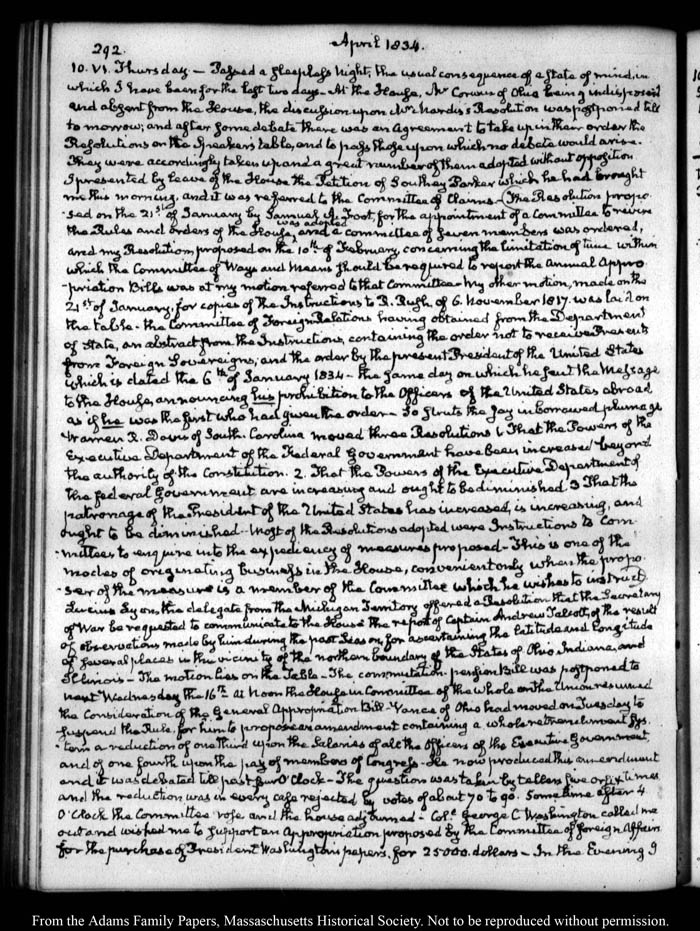 292.
April 1834.
10. VI. Thursday — Passed a sleepless night, the usual consequence of a state of mind, in
which I have been for the last two days — At the House, Mr Corwin of Ohio being indisposed
and absent from the House, the discussion upon Mr Mardis's Resolution was postponed till
to morrow; and after some debate there was an Agreement to take up in their order the
Resolutions on the Speaker's table, and to pass those upon which no debate would arise.
They were accordingly taken up and a great number of them adopted without opposition
I presented by leave of the House the Petition of Southey Parker which he had brought
me this morning, and it was referred to the Committee of Claims — The Resolution propo
-sed on the 21st of January by Samuel A. Foot, for the appointment of a Committee to revise
the Rules and orders of the House, was adopted and a committee of seven members was ordered,
and my Resolution, proposed on the 10th of February, concerning the limitation of time within
which the Committee of Ways and Means should be required to report the Annual Appro
-priation Bills was at my motion referred to that Committee — My other motion, made on the
21st of January, for copies of the Instructions to R. Rush, of 6. November 1817. was laid on
the table — the Committee of Foreign Relations having obtained from the Department
of State, an abstract from the Instructions, containing the order not to receive Presents
from Foreign Sovereigns, and the order by the present President of the United States
which is dated the 6th of January 1834 — the same day on which he sent the Message
to the House, announcing his prohibition to the Officers of the United States abroad
as if he was the first who had given the order — So struts the Jay in borrowed plumage
Warren R. Davis of South. Carolina moved three Resolutions 1. That the Powers of the
Executive Department of the Federal Government have been increased beyond
the authority of the Constitution. 2. That the Powers of the Executive Department of
the federal Government are increasing and ought to be diminished 3 That the
patronage of the President of the United States has increased, is increasing, and
ought to be diminished — Most of the Resolutions adopted were Instructions to Com
-mittees to enquire into the expediency of measures proposed — This is one of the
modes of originating business in the House, convenient only when the propo
-ser of the measure is a member of the Committee which he wishes to instruct
Lucius Lyon, the delegate from the Michigan Territory offered a Resolution that the Secretary
of War be requested to communicate to the House the report of Captain Andrew Talcott, of the result
of observations made by him during the past Season, for ascertaining the latitude and Longitude
of several places in the vicinity of the northern boundary of the States of Ohio, Indiana, and
Illinois — The motion lies on the Table — The commutation-pension Bill was postponed to
next Wednesday the 16th At Noon the House in Committee of the whole on the Union resumed
the Consideration of the General Appropriation Bill — Vance of Ohio had moved on Tuesday to
suspend the Rule, for him to propose an amendment containing a whole retrenchment sys
-tem a reduction of one third upon the Salaries of all the Officers of the Executive Government,
and of one fourth upon the pay of members of Congress — He now produced this amendment
and it was debated till past four O'Clock — The question was taken by tellers five or six times
and the reduction was in every case rejected by votes of about 70 to 90. Some time after 4
O'Clock the Committee rose and the house adjourned — Coll. George C. Washington called me
out and wished me to support an Appropriation proposed by the Committee of foreign Affairs
for the purchase of President Washington's papers, for 25000. dollars — In the Evening I
From the Adams Family Papers, Massachusetts Historical Society. Not to be reproduced without permission.